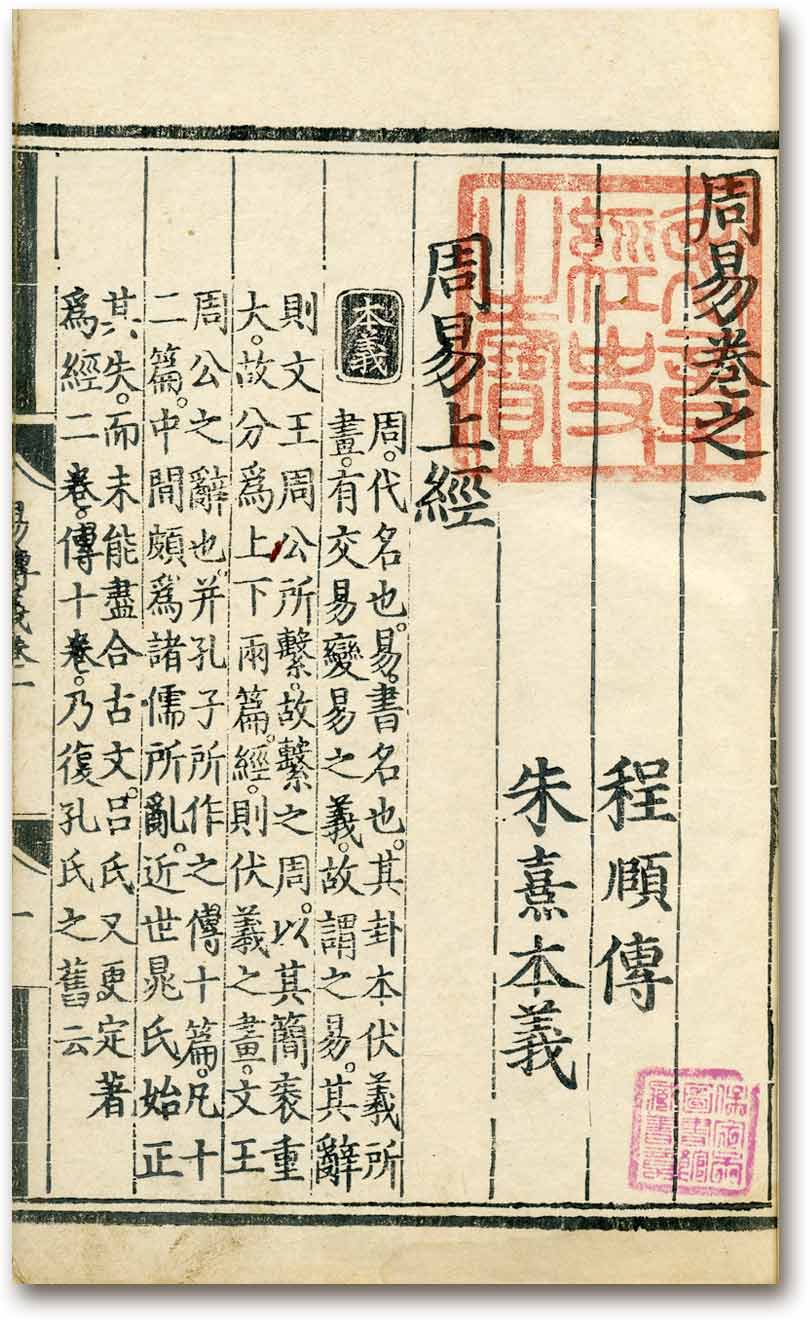 周易卷之一
程頤傳
朱熹本義
周易上經
本義
周。代名也。易。書名也。其卦本伏羲所
畫。有交易變易之義。故謂之易。其辭
則文王周公所繫。故繫之周。以其簡袠重
大。故分爲上下兩篇。經。則伏羲之畫。文王
周公之辭也。并孔子所作之傳十篇。凡十
二篇。中間頗爲諸儒所亂。近世晁氏始正
其失。而未能盡合古文。吕氏又更定著
爲經二卷。傳十卷。乃復孔氏之舊云
易傳義卷一
一
表章經史之寶